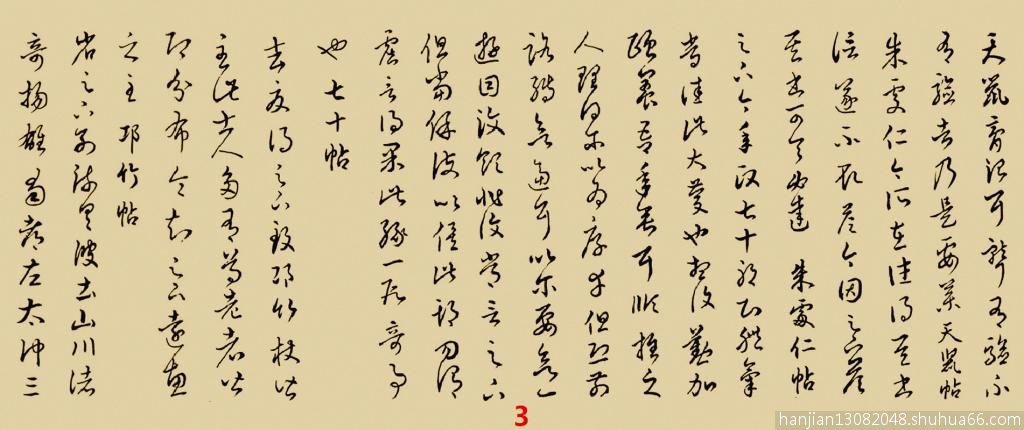 天鼠膏治耳聾有驗不
有驗者乃是要藥 天鼠帖
朱處仁今所在往得其書
信遂不取答今因足下答
其書可令必達 朱處仁帖
足下今年政七十耶知體氣
常佳此大慶也想復勤加
頤養吾年垂耳順推之
人理得爾以為厚幸但恐前
路轉欲逼耳以爾要欲一
遊目汶領非復常言足下
但當保護以俟此期勿謂
虛言得果此緣一段奇事
也 七十帖
去夏得足下致邛竹杖皆
至此士人多有尊老者皆
即分布令知足下遠惠
之至 邛竹帖
省足下別疏具彼土山川諸
奇揚雄蜀都左太沖三
3
hanjian13082048.shuhua66.com